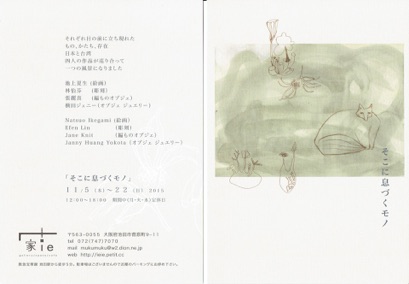 それぞれ目の前に立ち現れた
もの、かたち、存在
日本と台湾
四人の作品が巡り合って
一つの風景になりました
池上夏生（絵画）
林怡芬（彫刻）
張麗貞（編ものオブジェ）
横田ジェニー（オブジェ ジュエリー）
Natsuo Ikegami（絵画）
Efen Lin（彫刻）
Jane Knit（編ものオブジェ）
Janny Huang Yokota（オブジェ ジュエリー）
「そこに息づくモノ」
11/5（木）～22（日）2015
12:00～18:00
家 ie
〒563-0055 大阪府池田市菅原町9-11
tel 072(747)7070
web http://ie.petit.cc
そこに息づくモノ